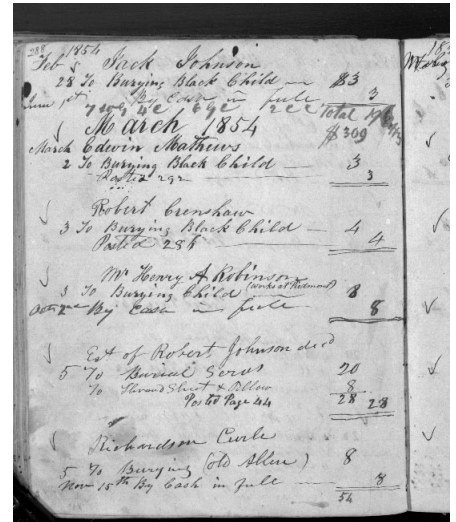 288 1854
Feb Jack Johnson
28 To Burying Black Child — $3
June 1st By Cash in full 3
7 wc, 4 c, 6 9 c 2 c c Total
March 1854 $309
March Edwin Mathews
2 To Burying Black Child — 3
Posted 292 3
Robert Crenshaw
3 To Burying Black Child — 4
Posted 286 4
Mr Henry A Robinson
3 To Burying Child (works at Richmond) 8
Octr 2nd By Cash in full 8
Est of Robert Johnson decd
5 To Burial Servs 20
To Shroud Sheet & Pillow 8
Posted Page 44 28 28
Richardson Curle
5 To Burying (old Allen) 8
Nov 15th By Cash in full — 8
54